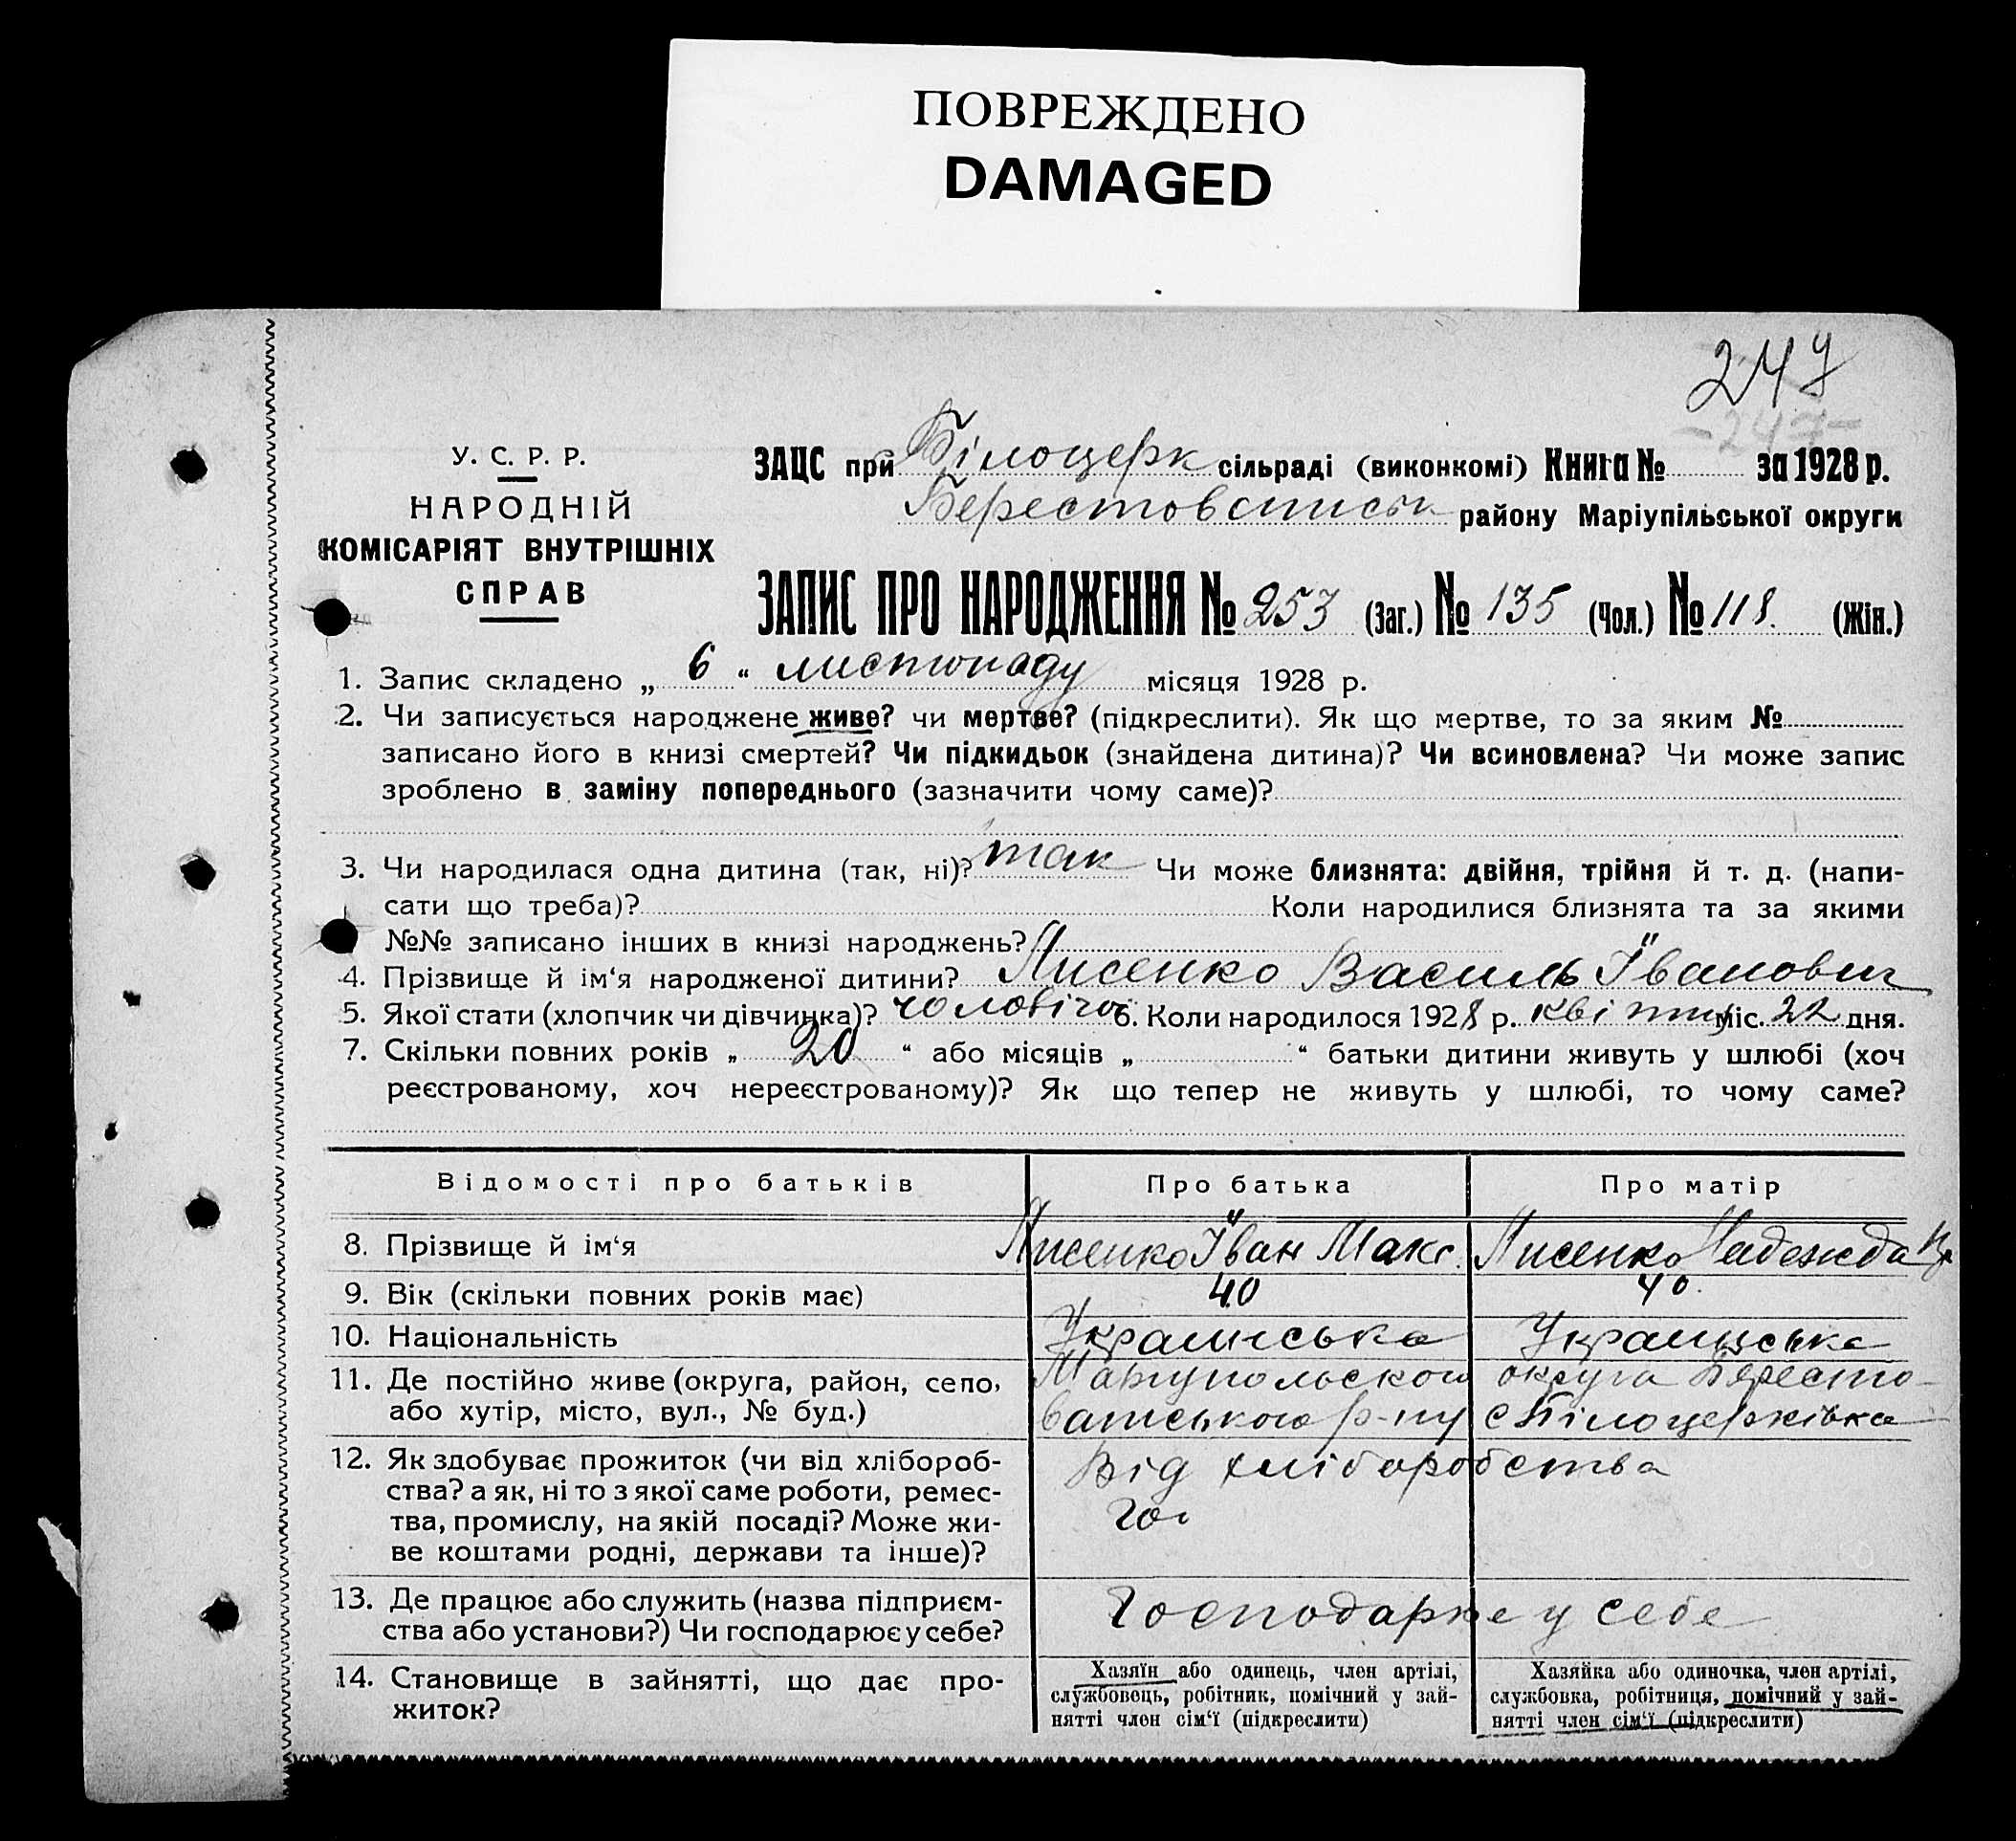 ПОВРЕЖДЕНО
DAMAGED
247
-247-
У. С. Р. Р.
НАРОДНІЙ
КОМІСАРІЯТ ВНУТРІШНІХ
СПРАВ
ЗАЦС при Білоцерк сільраді (виконкомі) Книга № за 1928 р.
району Маріупільської округи
ЗАПИС ПРО НАРОДЖЕННЯ № 253 (Заг.) № 135 (Чол.) № 118. (Жін.)
1. Запис складено „ 6 “ листопаду місяця 1928 р.
2. Чи записується народжене живе? чи мертве? (підкреслити). Як що мертве, то за яким №
записано його в книзі смертей? Чи підкидьок (знайдена дитина)? Чи всиновлена? Чи може запис
зроблено в заміну попереднього (зазначити чому саме)?
3. Чи народилася одна дитина (так, ні)? так Чи може близнята: двійня, трійня й т. д. (напи-
сати що треба)? Коли народилися близнята та за якими
№№ записано інших в книзі народжень?
4. Прізвище й ім‘я народженої дитини? Лисенко Василь Їванович
5. Якої стати (хлопчик чи дівчинка)? чоловічої 6. Коли народилося 1928 р. квітня міс. 22 дня.
7. Скільки повних років „ 20 “ або місяців „ “ батьки дитини живуть у шлюбі (хоч
реєстрованому, хоч нереєстрованому)? Як що тепер не живуть у шлюбі, то чому саме?
Відомості про батьків Про батька Про матір
8. Прізвище й ім‘я Лисенко Їван Макс. Лисенко Надежда
9. Вік (скільки повних років має) 40 40.
10. Національність Украинська Украинська
11. Де постійно живе (округа, район, село, Маріупольскои округа Бересто-
або хутір, місто, вул., № буд.) ватського р-ну с Білоцерківка
12. Як здобуває прожиток (чи від хлібороб- Від хліборобства
ства? а як, ні то з якої саме роботи, ремес-
тва, промислу, на якій посаді? Може жи- го.
ве коштами родні, держави та інше)?
13. Де працює або служить (назва підприєм- Господарює у себе
ства або установи?) Чи господарює у себе?
14. Становище в зайнятті, що дає про- Хазяїн або одинець, член артілі, Хазяйка або одиночка, член артілі,
житок? службовець, робітник, помічний у зай- службовка, робітниця, помічний у зай-
нятті член сім‘ї (підкреслити) нятті член сім‘ї (підкреслити)